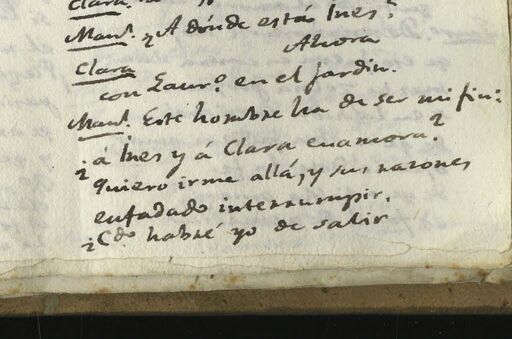 Clara.
Manl. y A dónde está Ines?
Ahora
Clara
con Laurº. en el Jardin.
Manl. Este hombre ha de ser mi fin:
¿á Ines y á Clara enamora?
Quiero irme allá, y sus razones
enfadado interrumpir.
¿Cdo habré yo de salir